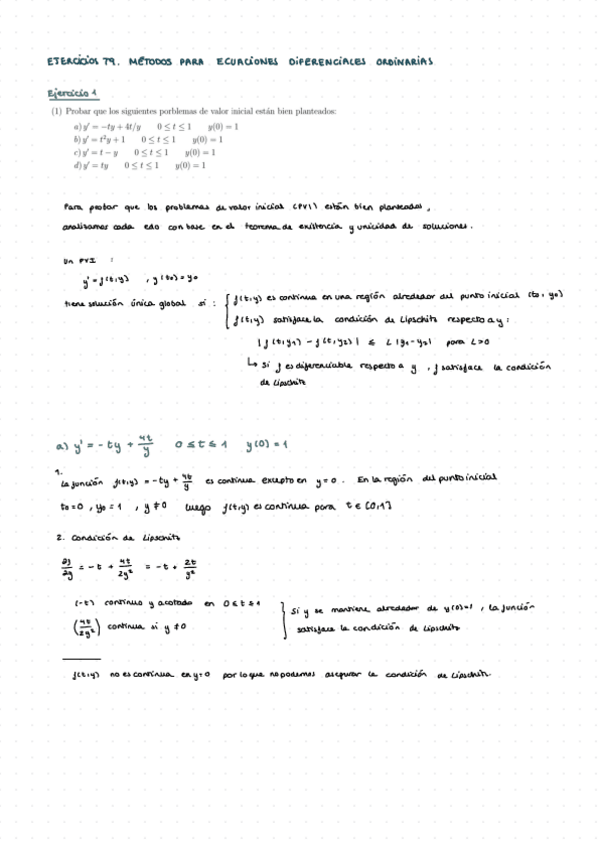 EJERCICIOS T9. MÉTODOS PARA ECUACIONES DIFERENCIALES ORDINARIAS
Ejercicio 1
(1) Probar que los siguientes porblemas de valor inicial están bien planteados:
a) y' = −ty + 4t/y 0 ≤ t ≤ 1 y(0) = 1
b) y' = t²y + 1 0 ≤ t ≤ 1 y(0) = 1
c) y' = t − y 0 ≤ t ≤ 1 y(0) = 1
d) y' = ty 0 ≤ t ≤ 1 y(0) = 1
Para probar que los problemas de valor inicial (PVI) están bien planteados,
analizamos cada edo con base en el teorema de existencia y unicidad de soluciones.
Un PVI :
y' = f(t,y) , y(t0) = y0
tiene solución única global si : { f(t,y) es continua en una región alrededor del punto inicial (t0, y0)
f(t,y) satisface la condición de Lipschitz respecto a y :
| f(t,y1) − f(t,y2) | ≤ L |y1−y2| para L>0
↳ Si f es diferenciable respecto a y , f satisface la condición
de Lipschitz
a) y' = −ty + 4t/y 0 ≤ t ≤ 1 y(0) = 1
1.
La función f(t,y) = −ty + 4t/y es continua excepto en y = 0 . En la región del punto inicial
t0 = 0 , y0 = 1 , y ≠ 0 Luego f(t,y) es continua para t ∈ [0,1]
2. Condición de Lipschitz
∂f/∂y = −t + 4t/2y² = −t + 2t/y²
(−t) continua y acotada en 0 ≤ t ≤ 1
(4t/2y²) continua si y ≠ 0
} Si y se mantiene alrededor de y(0)=1 , la función
satisface la condición de Lipschitz
f(t,y) no es continua en y=0 por lo que no podemos asegurar la condición de Lipschitz.